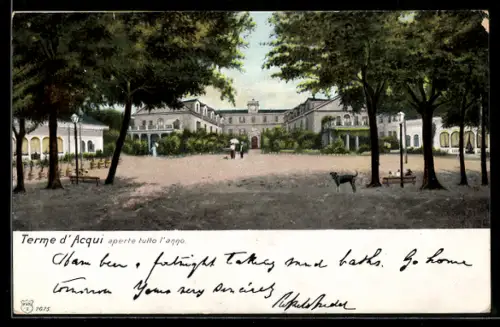 Terme d'Acqui aperte tutto l'anno.
Have been a fortnight taking mud baths. Go home
tomorrow Yours very sincerely
7675